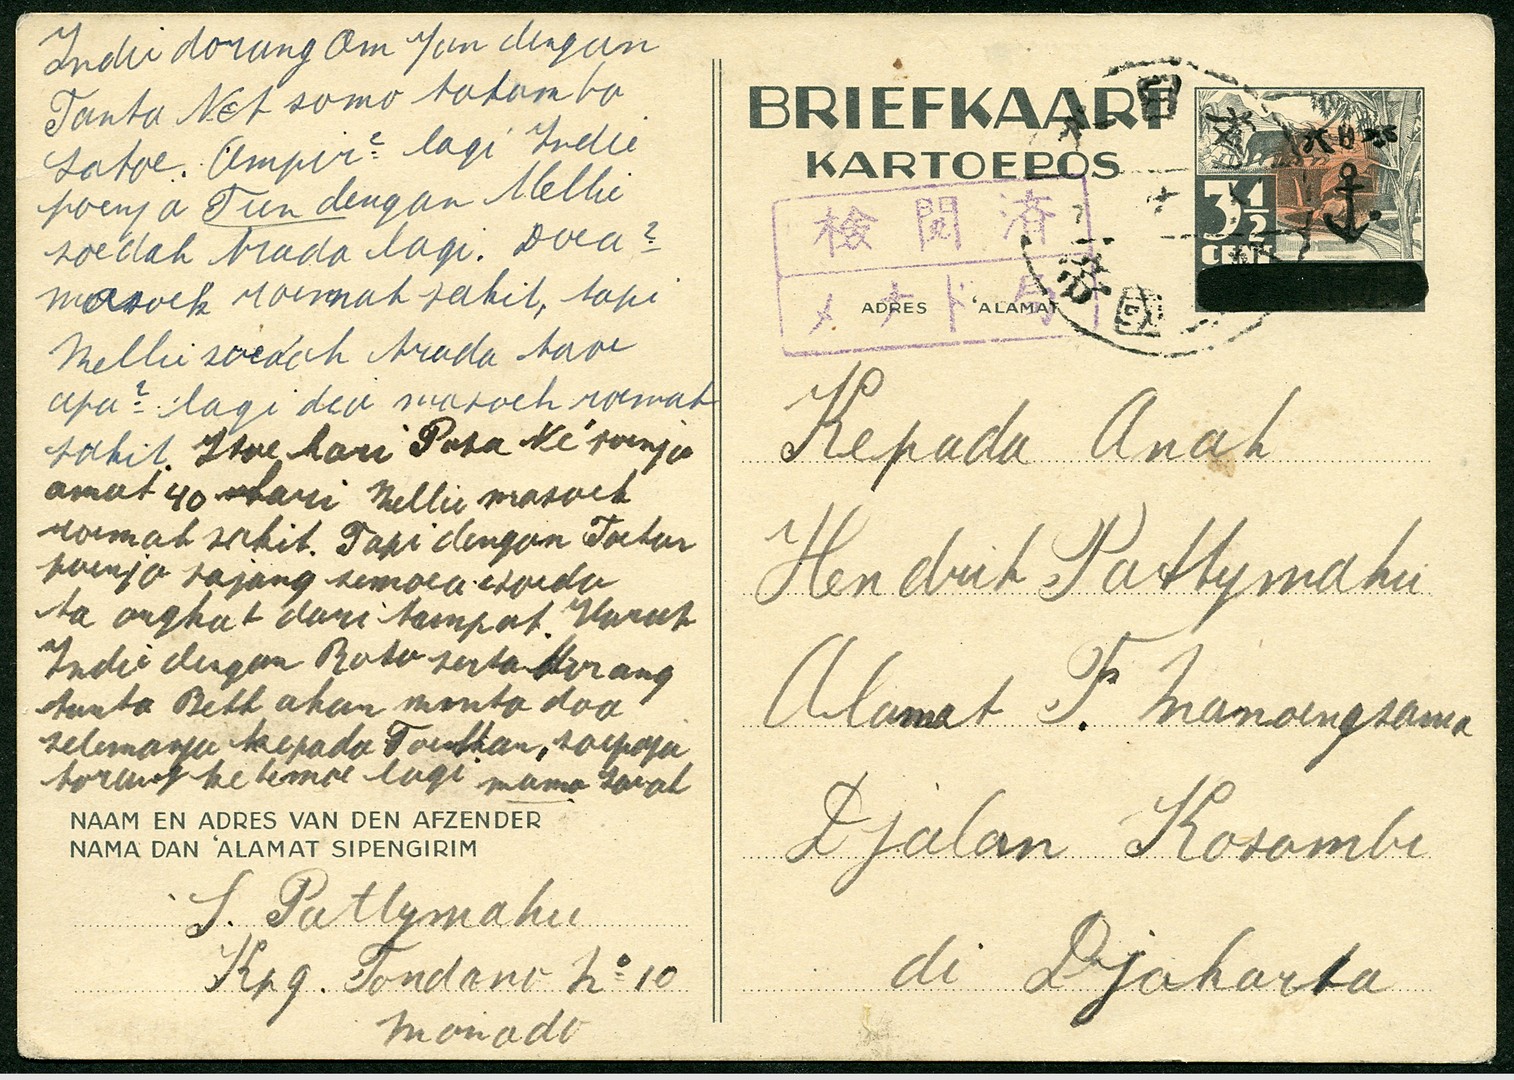 Indie dorang Om Jan dengan
Tanta Net somo tatamba
satoe. Ampir² lagi Indie
poenja Tien dengan Nellie
soedah trada lagi. Doea²
masoek roemah sakit, tapi
Nellie soedah trada taoe
apa² lagi dia masoek roemah
sakit. Itoe hari Posa Né poenja
amat 40 hari Nellie masoek
roemah sakit. Tapi dengan Toehan
poenja sajang semoea soeda
ta angkat dari tampat. Harah
Indie dengan Roto serta dorang
tanta Bett akan minta doa
selamanja kepada Toehan, soepaja
torang ketemoe lagi. mama Sarah
NAAM EN ADRES VAN DEN AFZENDER
NAMA DAN 'ALAMAT SIPENGIRIM
S. Pattymahu
Kpg. Tondano No 10
Manado
BRIEFKAART
KARTOEPOS
3½
CENT
検閲済
メナド局
ADRES 'ALAMAT
Kepada Anak
Hendrik Pattymahu
Alamat F. Mamoengsama
Djalan Kosambi
di Djakarta